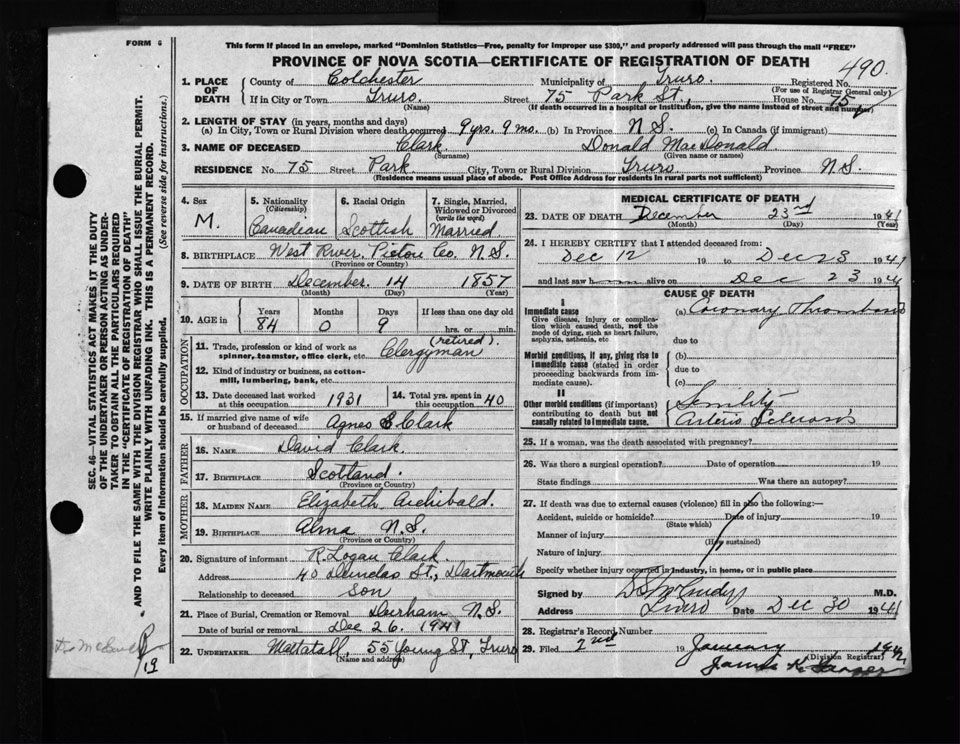 FORM 6
This form if placed in an envelope, marked "Dominion Statistics—Free, penalty for improper use $300," and properly addressed will pass through the mail "FREE"
PROVINCE OF NOVA SCOTIA—CERTIFICATE OF REGISTRATION OF DEATH
490
1. PLACE OF DEATH
County of Colchester Municipality of Truro. Registered No.
(For use of Registrar General only)
If in City or Town Truro. Street 75 Park St., House No. 75
(Name) (If death occurred in a hospital or institution, give the name instead of street and number)
2. LENGTH OF STAY (in years, months and days)
(a) In City, Town or Rural Division where death occurred 9 yrs. 9 mo. (b) In Province N.S. (c) In Canada (if immigrant)
3. NAME OF DECEASED Clark. Donald MacDonald
(Surname) (Given name or names)
RESIDENCE No. 75 Street Park City, Town or Rural Division Truro. Province N.S.
(Residence means usual place of abode. Post Office Address for residents in rural parts not sufficient)
4. Sex M.
5. Nationality (Citizenship) Canadian
6. Racial Origin Scottish
7. Single, Married, Widowed or Divorced (write the word) Married
8. BIRTHPLACE West River, Pictou Co. N.S.
(Province or Country)
9. DATE OF BIRTH December 14 1857
(Month) (Day) (Year)
10. AGE in Years Months Days If less than one day old
84 0 9 hrs. or min.
OCCUPATION
11. Trade, profession or kind of work as spinner, teamster, office clerk, etc. Clergyman (retired).
12. Kind of industry or business, as cotton-mill, lumbering, bank, etc.
13. Date deceased last worked at this occupation 1931
14. Total yrs. spent in this occupation 40
15. If married give name of wife or husband of deceased Agnes Clark
FATHER
16. NAME David Clark.
17. BIRTHPLACE Scotland.
(Province or Country)
MOTHER
18. MAIDEN NAME Elizabeth Archibald.
19. BIRTHPLACE Alma N.S.
(Province or Country)
20. Signature of informant R. Logan Clark.
Address 40 Dundas St., Dartmouth
Relationship to deceased son
21. Place of Burial, Cremation or Removal Durham N.S.
Date of burial or removal Dec 26. 1941
22. UNDERTAKER Mattatall, 55 Young St, Truro
(Name and address)
MEDICAL CERTIFICATE OF DEATH
23. DATE OF DEATH December 23rd 1941
(Month) (Day) (Year)
24. I HEREBY CERTIFY that I attended deceased from:
Dec 12 19 to Dec 23 1941
and last saw h alive on Dec 23 194
CAUSE OF DEATH
I
Immediate cause
Give disease, injury or complication which caused death, not the mode of dying, such as heart failure, asphyxia, asthenia, etc
(a) Coronary Thrombosis
due to
Morbid conditions, if any, giving rise to immediate cause (stated in order proceeding backwards from immediate cause).
(b)
due to
(c)
II
Other morbid conditions (if important) contributing to death but not causally related to immediate cause.
Senility
Arterio Sclerosis
25. If a woman, was the death associated with pregnancy?
26. Was there a surgical operation? Date of operation 19
State findings Was there an autopsy?
27. If death was due to external causes (violence) fill in also the following:—
Accident, suicide or homicide? Date of injury 19
(State which)
Manner of injury
(How sustained)
Nature of injury
Specify whether injury occurred in industry, in home, or in public place
Signed by M.D.
Address Truro Date Dec 30 1941
28. Registrar's Record Number
29. Filed 2nd January 1942
(Division Registrar)
SEC. 46—VITAL STATISTICS ACT MAKES IT THE DUTY
OF THE UNDERTAKER OR PERSON ACTING AS UNDER-
TAKER TO OBTAIN ALL THE PARTICULARS REQUIRED
IN THE "CERTIFICATE OF REGISTRATION OF DEATH"
AND TO FILE THE SAME WITH THE DIVISION REGISTRAR WHO SHALL ISSUE THE BURIAL PERMIT.
WRITE PLAINLY WITH UNFADING INK. THIS IS A PERMANENT RECORD.
Every item of information should be carefully supplied. (See reverse side for instructions.)
19